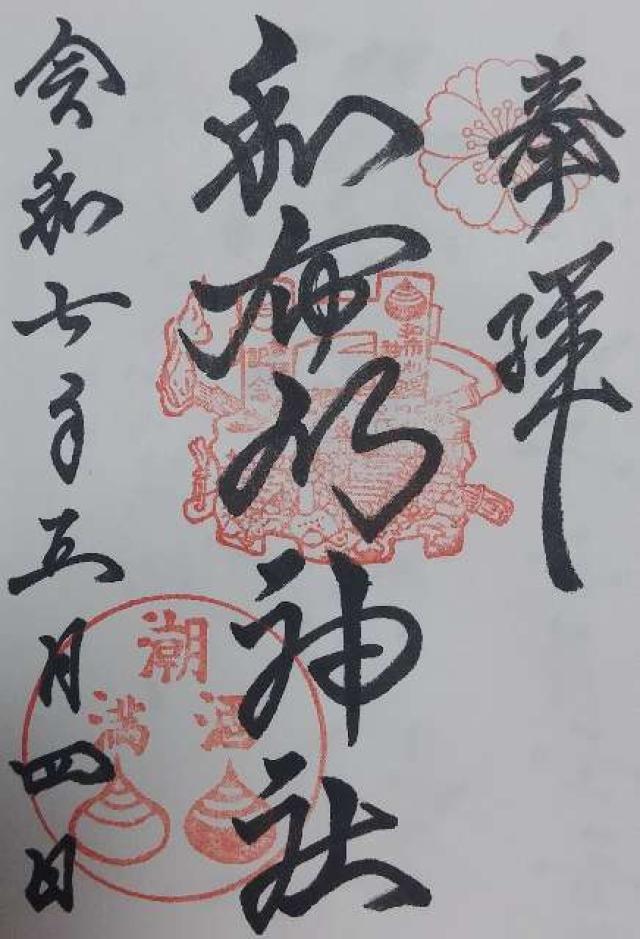 奉拝
和布刈神社
令和七年五月四日
潮
満